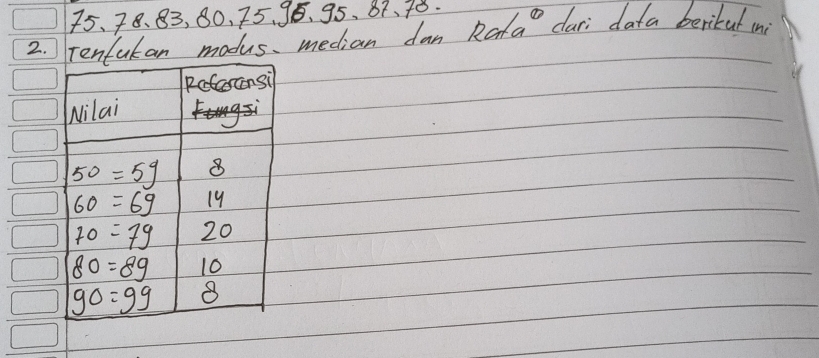 75, 78, 83, 80, 75, 95, 95, 87, 78.
2. Tentukan modus, median dan Rata² dari data berikut ini
Nilai Referensi
50 = 59 8
60 = 69 14
70 = 79 20
80 = 89 10
90 = 99 8